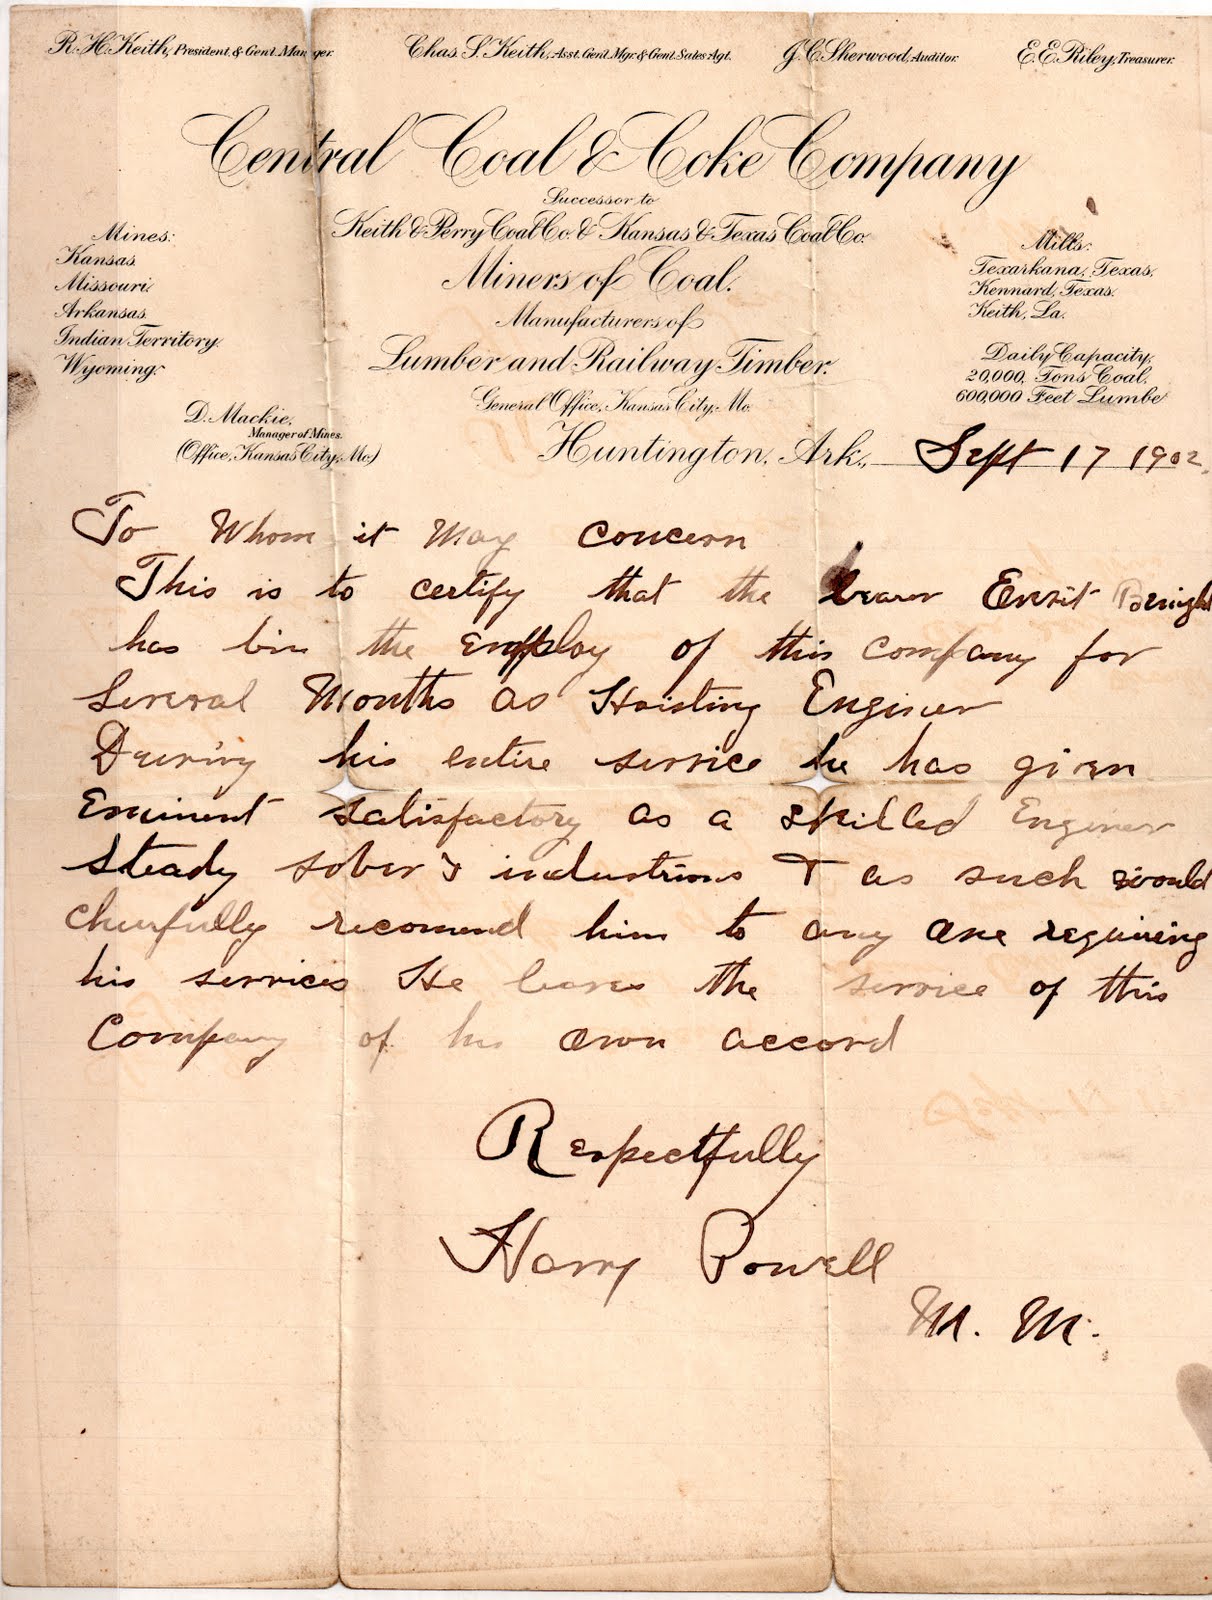 R. H. Keith, President & Gen'l. Manager.
Chas. S. Keith, Asst. Gen'l Mgr. & Gen'l. Sales Agt.
J. C. Sherwood, Auditor.
E. E. Riley, Treasurer.
Central Coal & Coke Company
Successor to
Keith & Perry Coal Co. & Kansas & Texas Coal Co.
Miners of Coal.
Manufacturers of
Lumber and Railway Timber.
General Office, Kansas City, Mo.
Mines:
Kansas.
Missouri.
Arkansas.
Indian Territory.
Wyoming.
D. Mackie,
Manager of Mines.
(Office, Kansas City, Mo.)
Mills:
Texarkana, Texas.
Kennard, Texas.
Keith, La.
Daily Capacity,
20,000, Tons Coal.
600,000 Feet Lumbe
Huntington, Ark., Sept 17 1902.
To Whom it May Concern
This is to certify that the Ernst
has bin the employ of this company for
several Months as Hoisting Enginer
During his entire service he has given
Eminent satisfactory as a skilled Enginer
steady sober & industrious & as such would
cheerfully recomend him to any one requiring
his services He leaves the service of this
Company of his own accord
Respectfully
Harry Powell
M. M.